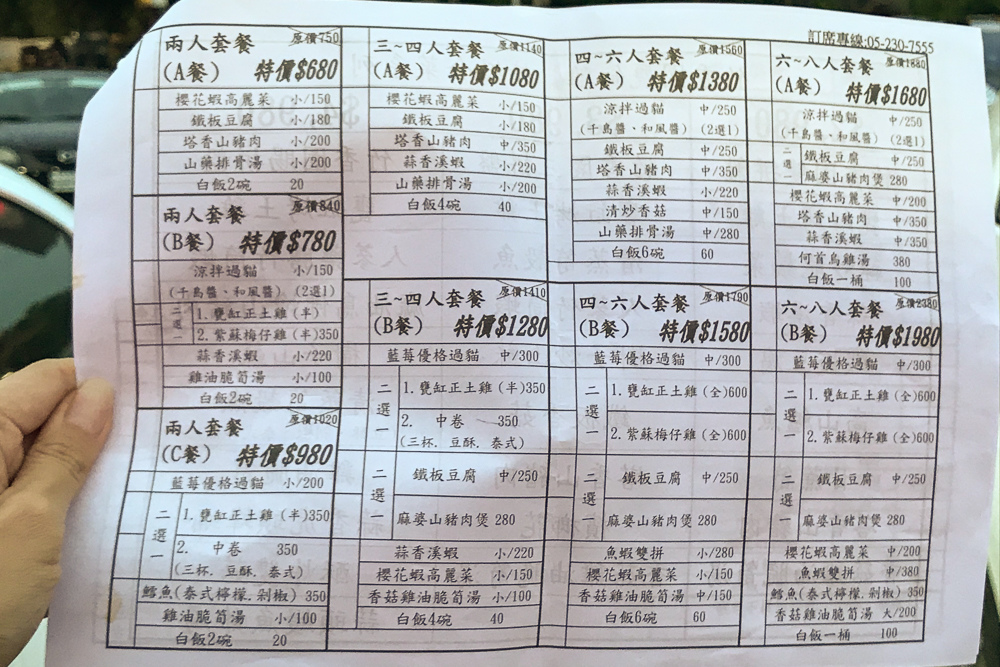 訂席專線:05-230-7555
兩人套餐 原價750
(A餐) 特價$680
櫻花蝦高麗菜 小/150
鐵板豆腐 小/180
塔香山豬肉 小/200
山藥排骨湯 小/200
白飯2碗 20
兩人套餐 原價840
(B餐) 特價$780
涼拌過貓 小/150
(千島醬、和風醬) (2選1)
二選一
1.甕缸正土雞(半)
2.紫蘇梅仔雞(半)350
蒜香溪蝦 小/220
雞油脆筍湯 小/100
白飯2碗 20
兩人套餐 原價1020
(C餐) 特價$980
藍莓優格過貓 小/200
二選一
1.甕缸正土雞(半)350
2. 中卷 350
(三杯. 豆酥. 泰式)
鱈魚(泰式檸檬.剁椒) 350
雞油脆筍湯 小/100
白飯2碗 20
三~四人套餐 原價1140
(A餐) 特價$1080
櫻花蝦高麗菜 小/150
鐵板豆腐 小/180
塔香山豬肉 中/350
蒜香溪蝦 小/220
山藥排骨湯 小/200
白飯4碗 40
三~四人套餐 原價1410
(B餐) 特價$1280
藍莓優格過貓 中/300
二選一
1.甕缸正土雞(半)350
2. 中卷 350
(三杯. 豆酥. 泰式)
二選一
鐵板豆腐 中/250
麻婆山豬肉煲 280
蒜香溪蝦 小/220
櫻花蝦高麗菜 小/150
香菇雞油脆筍湯 小/100
白飯4碗 40
四~六人套餐 原價1560
(A餐) 特價$1380
涼拌過貓 中/250
(千島醬、和風醬) (2選1)
鐵板豆腐 中/250
塔香山豬肉 中/350
蒜香溪蝦 小/220
清炒香菇 中/150
山藥排骨湯 中/280
白飯6碗 60
四~六人套餐 原價1790
(B餐) 特價$1580
藍莓優格過貓 中/300
二選一
1.甕缸正土雞(全)600
2.紫蘇梅仔雞(全)600
二選一
鐵板豆腐 中/250
麻婆山豬肉煲 280
魚蝦雙拼 小/280
櫻花蝦高麗菜 小/150
香菇雞油脆筍湯 中/150
白飯6碗 60
六~八人套餐 原價1880
(A餐) 特價$1680
涼拌過貓 中/250
(千島醬、和風醬) (2選1)
二選一
鐵板豆腐 中/250
麻婆山豬肉煲 280
櫻花蝦高麗菜 中/200
塔香山豬肉 中/350
蒜香溪蝦 中/350
何首烏雞湯 380
白飯一桶 100
六~八人套餐 原價2380
(B餐) 特價$1980
藍莓優格過貓 中/300
二選一
1.甕缸正土雞(全)600
2.紫蘇梅仔雞(全)600
二選一
鐵板豆腐 中/250
麻婆山豬肉煲 280
櫻花蝦高麗菜 中/200
魚蝦雙拼 中/380
鱈魚(泰式檸檬.剁椒) 350
香菇雞油脆筍湯 大/200
白飯一桶 100